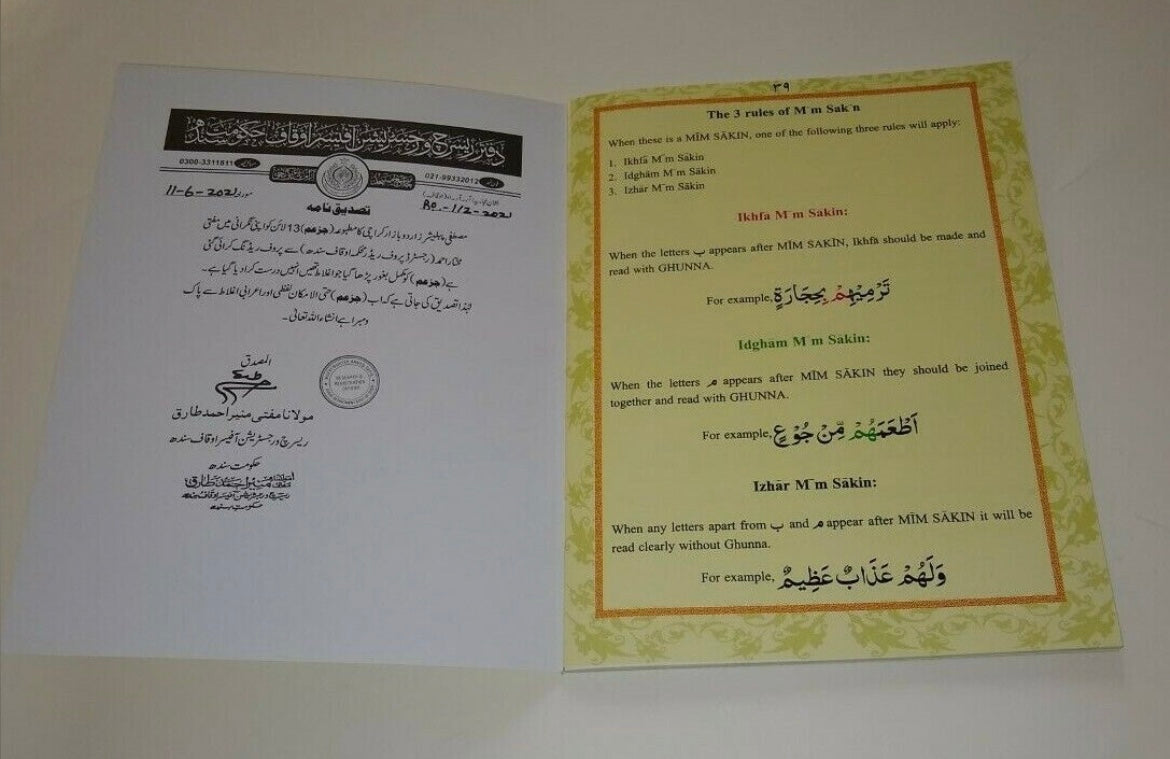 دفتر ریسرچ و رجسٹریشن آفیسر اوقاف حکومت سندھ
0300-3311811
021-99332012
مورخہ 11-6-2021
RO.-112-2021
تصدیق نامہ
مصطفی پبلیشرز اردو بازار کراچی کا مطبوعہ (جز عم) 13 لائن کو اپنی نگرانی میں مفتی
مختار احمد (رجسٹرڈ پروف ریڈر محکمہ اوقاف سندھ) سے پروف ریڈنگ کرائی گئی
ہے (جز عم) کو مکمل بغور پڑھا گیا جو اغلاط تھیں انہیں درست کرا دیا گیا ہے۔
لہٰذا تصدیق کی جاتی ہے کہ اب (جز عم) حتی الامکان لفظی اور اعرابی اغلاط سے پاک
ومبرا ہے انشاء اللہ تعالی۔
المصدق
مولانا مفتی منیر احمد طارق
ریسرچ ورجسٹریشن آفیسر اوقاف سندھ
حکومت سندھ
منیر احمد طارق
ریسرچ و رجسٹریشن آفیسر اوقاف سندھ
حکومت سندھ
٣٩
The 3 rules of M¨m Sak¨n
When these is a MĪM SĀKIN, one of the following three rules will apply:
1. Ikhfā M¨m Sākin
2. Idghām M¨m Sākin
3. Izhar M¨m Sākin
Ikhfa M¨m Sakin:
When the letters ب appears after MĪM SĀKIN, Ikhfā should be made and
read with GHUNNA.
For example, تَرْمِيْهِمْ بِحِجَارَةٍ
Idgham M¨m Sakin:
When the letters م appears after MĪM SĀKIN they should be joined
together and read with GHUNNA.
For example, اَطْعَمَهُمْ مِّنْ جُوْعٍ
Izhār M¨m Sākin:
When any letters apart from ب and م appear after MĪM SĀKIN it will be
read clearly without Ghunna.
For example, وَلَهُمْ عَذَابٌ عَظِيمٌ